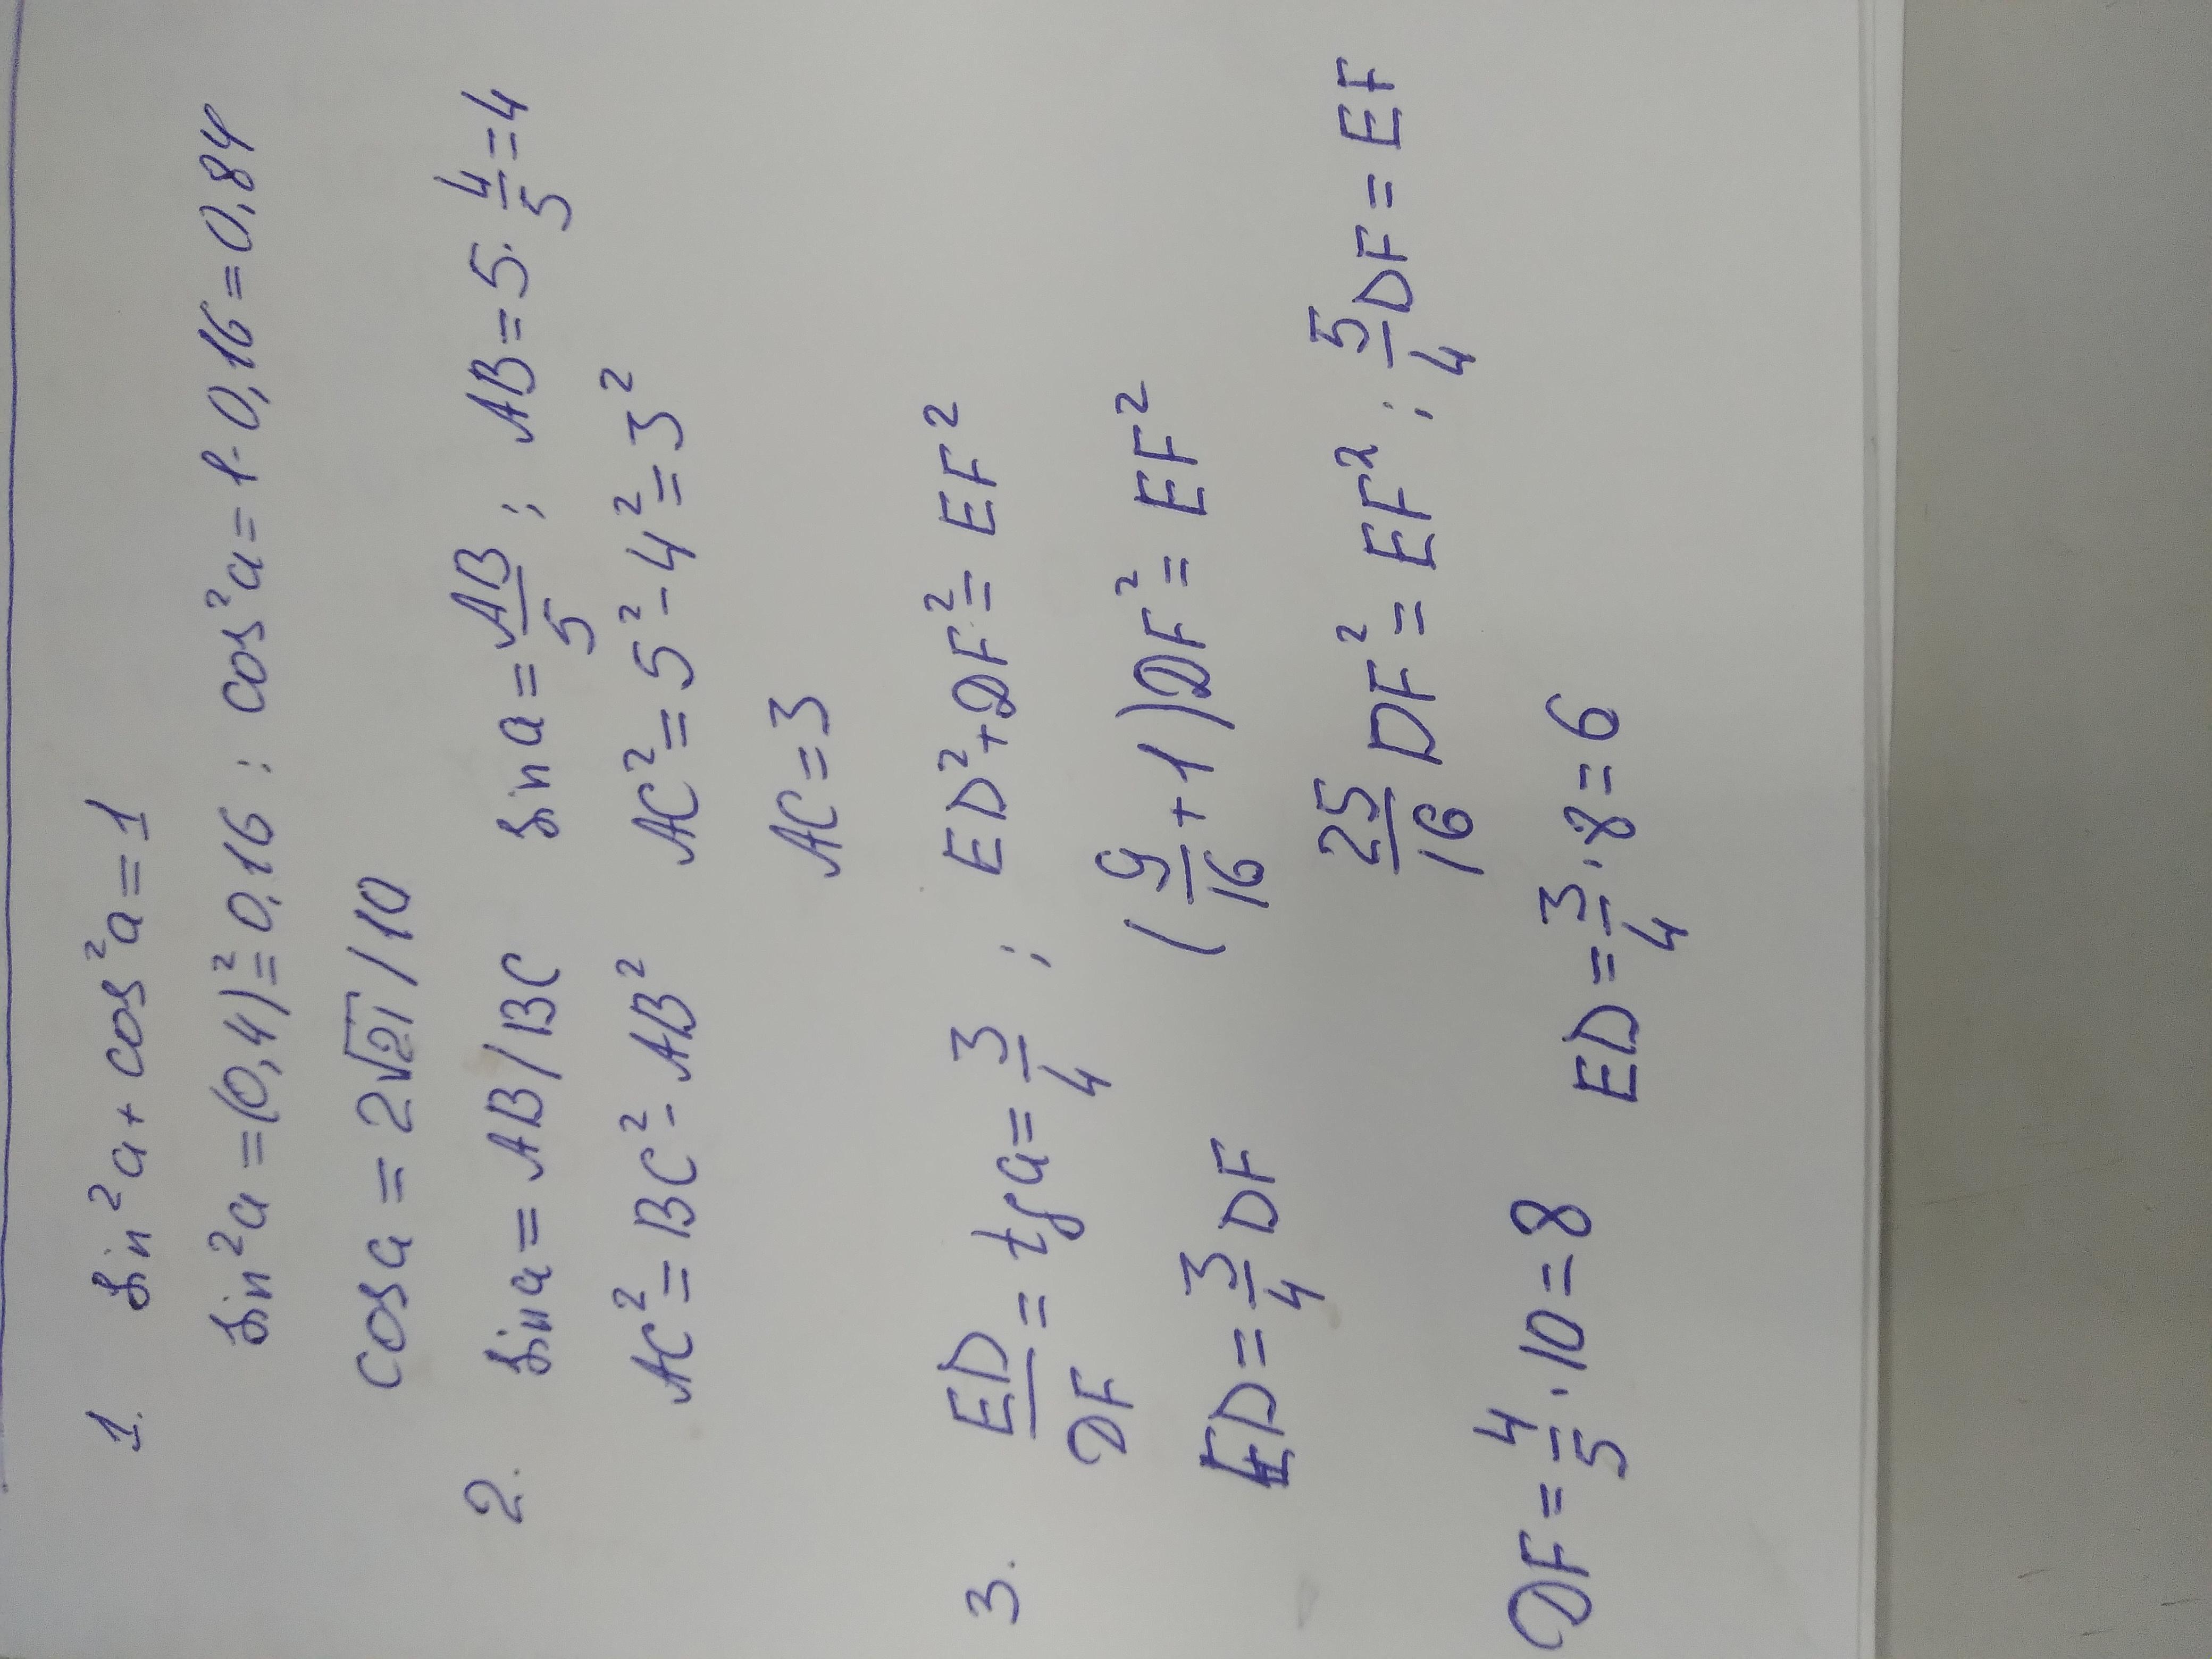 1. sin²a + cos²a = 1
sin²a = (0,4)² = 0,16 ; cos²a = 1 - 0,16 = 0,84
cosa = 2√21 / 10
2. sina = AB / BC sina = AB/5 ; AB = 5 · 4/5 = 4
AC² = BC² - AB² AC² = 5² - 4² = 3²
AC = 3
3. ED/DF = tga = 3/4 ; ED² + DF² = EF²
ED = 3/4 DF (9/16 + 1) DF² = EF²
25/16 DF² = EF² ; 5/4 DF = EF
DF = 4/5 · 10 = 8 ED = 3/4 · 8 = 6